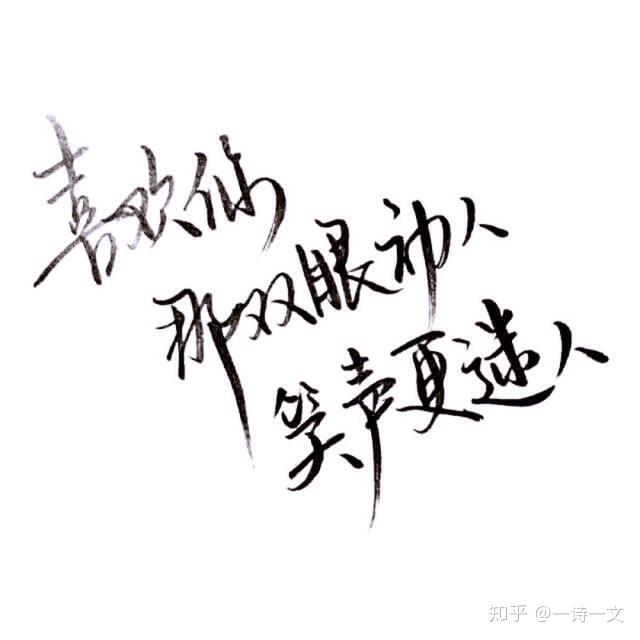 喜欢你
那双眼动人
笑声更迷人
知乎 @一诗一文